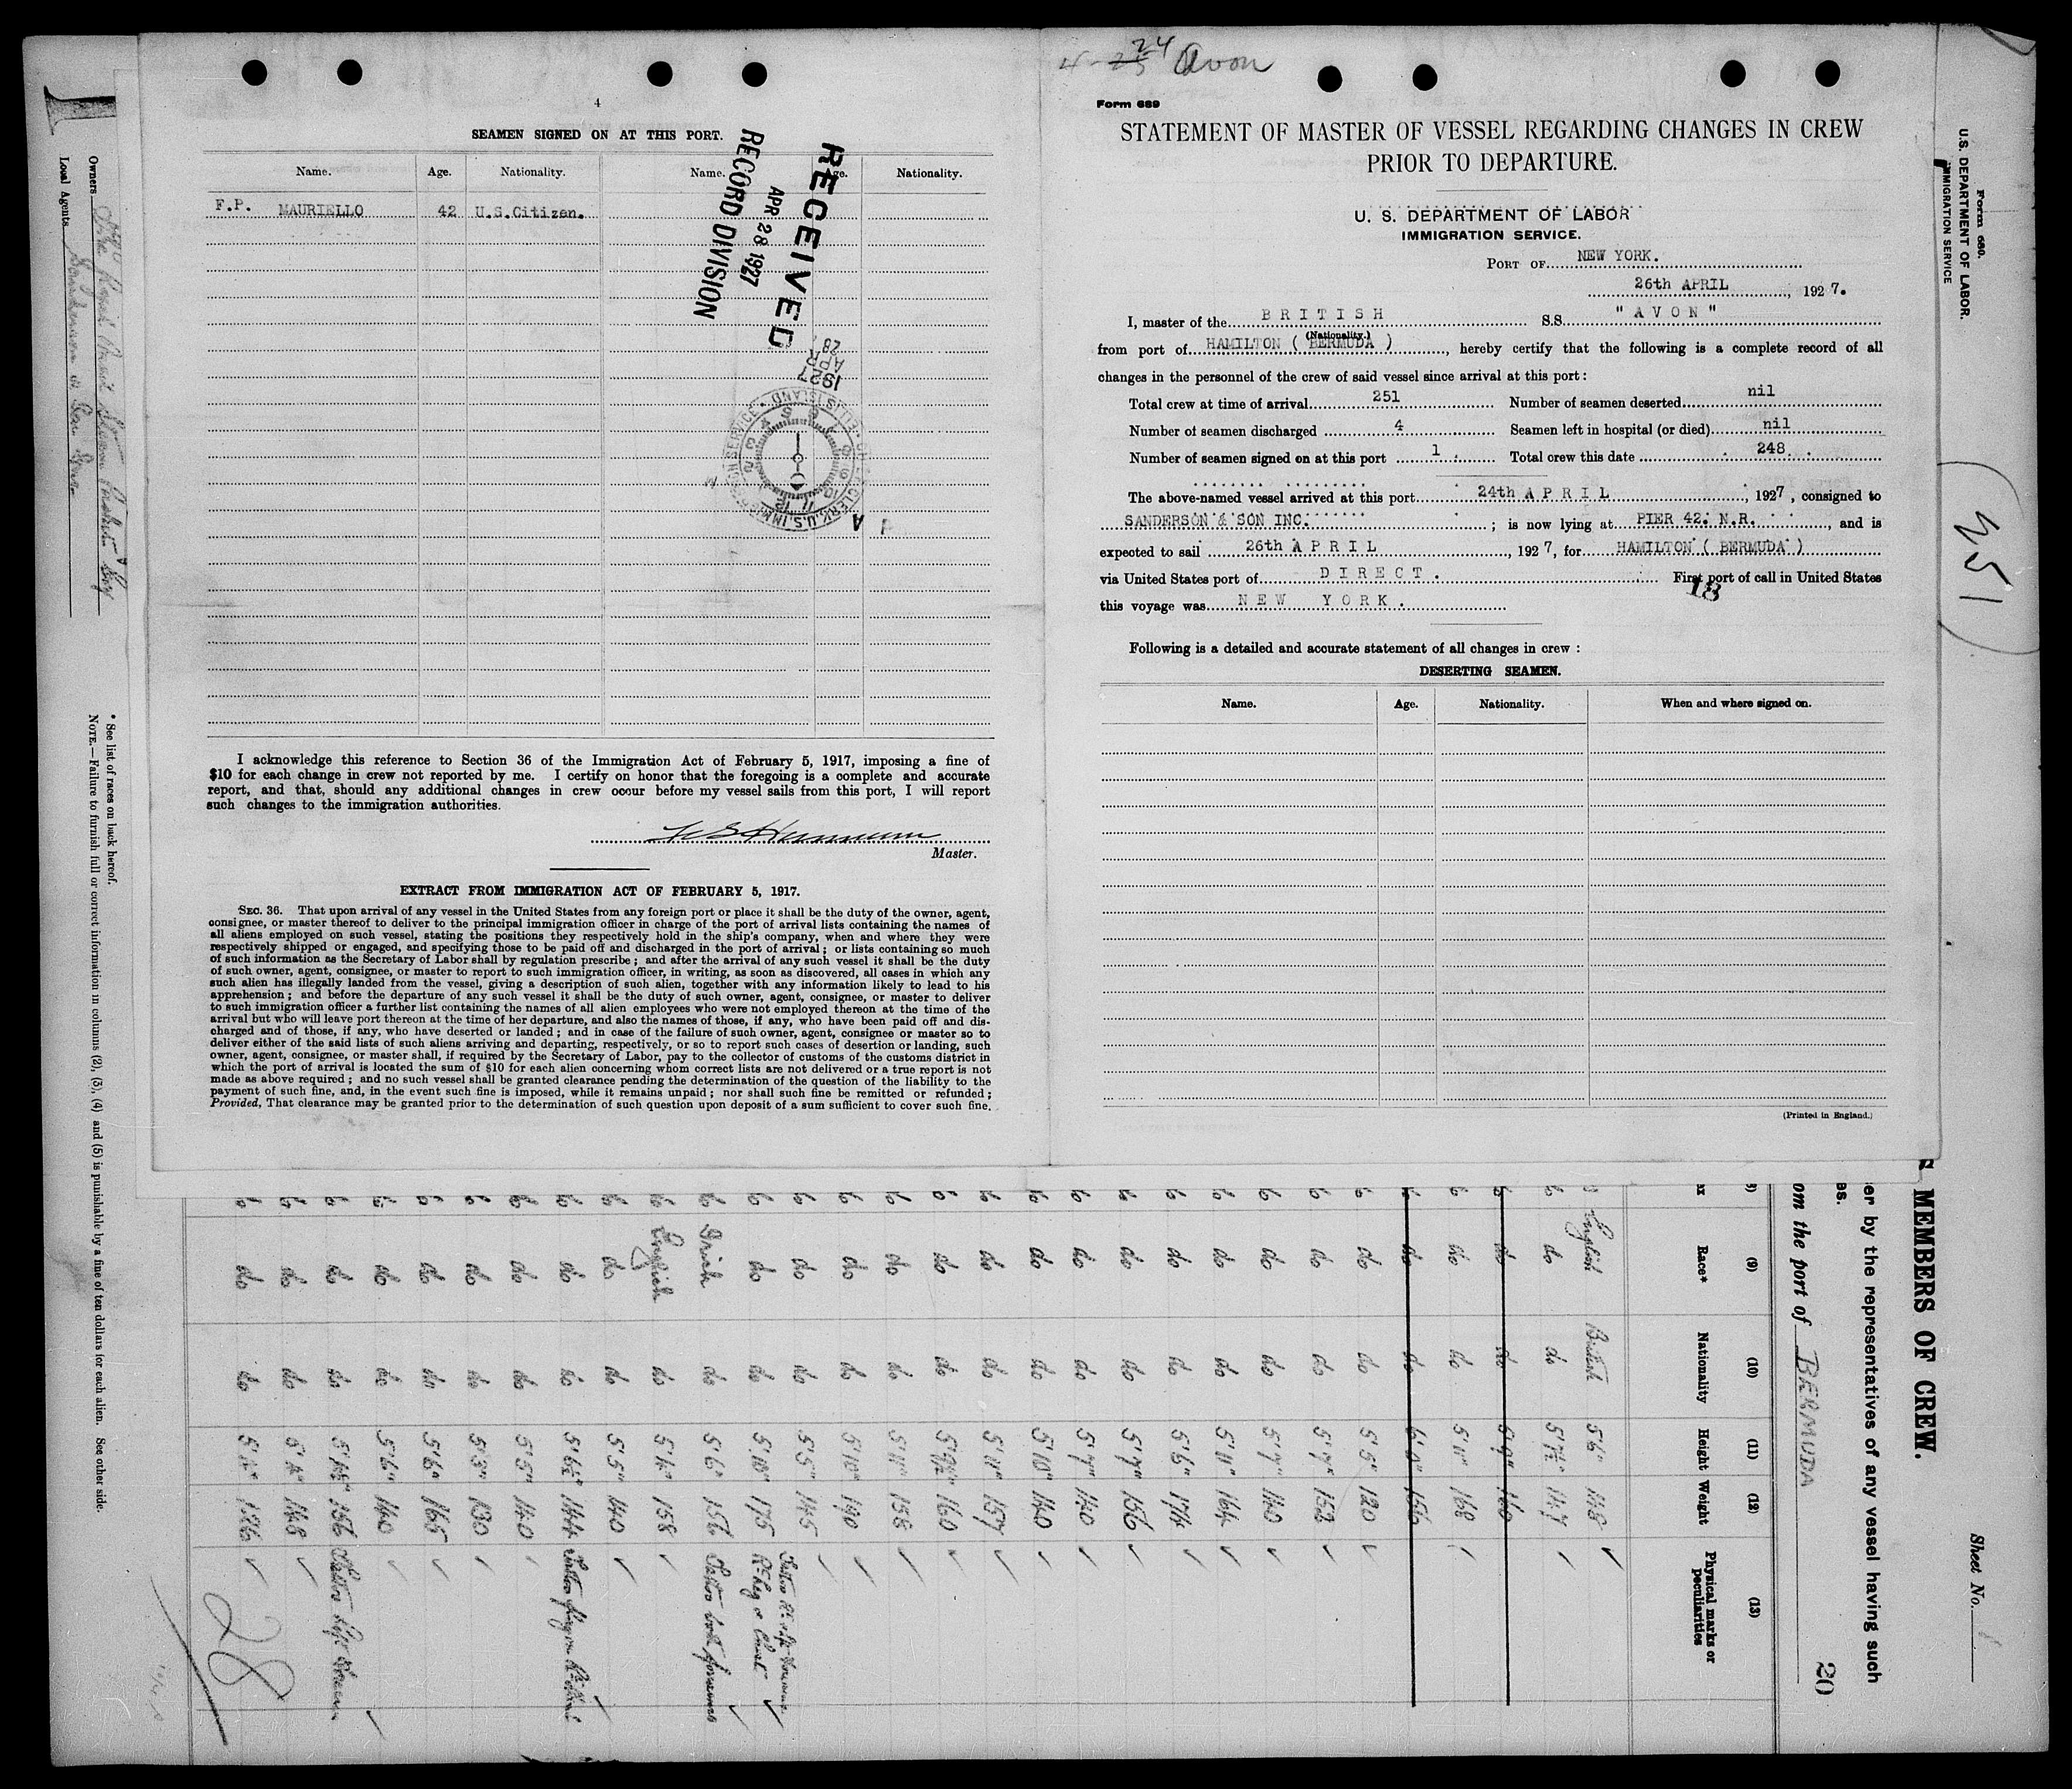 4
SEAMEN SIGNED ON AT THIS PORT.
Name. Age. Nationality. Name. Age. Nationality.
F.P. MAURIELLO 42 U.S.Citizen.
RECEIVED
APR 28 1927
RECORD DIVISION
28
APR
1927
I acknowledge this reference to Section 36 of the Immigration Act of February 5, 1917, imposing a fine of
$10 for each change in crew not reported by me. I certify on honor that the foregoing is a complete and accurate
report, and that, should any additional changes in crew occur before my vessel sails from this port, I will report
such changes to the immigration authorities.
Master.
EXTRACT FROM IMMIGRATION ACT OF FEBRUARY 5, 1917.
SEC. 36. That upon arrival of any vessel in the United States from any foreign port or place it shall be the duty of the owner, agent,
consignee, or master thereof to deliver to the principal immigration officer in charge of the port of arrival lists containing the names of
all aliens employed on such vessel, stating the positions they respectively hold in the ship's company, when and where they were
respectively shipped or engaged, and specifying those to be paid off and discharged in the port of arrival; or lists containing so much
of such information as the Secretary of Labor shall by regulation prescribe; and after the arrival of any such vessel it shall be the duty
of such owner, agent, consignee, or master to report to such immigration officer, in writing, as soon as discovered, all cases in which any
such alien has illegally landed from the vessel, giving a description of such alien, together with any information likely to lead to his
apprehension; and before the departure of any such vessel it shall be the duty of such owner, agent, consignee, or master to deliver
to such immigration officer a further list containing the names of all alien employees who were not employed thereon at the time of the
arrival but who will leave port thereon at the time of her departure, and also the names of those, if any, who have been paid off and dis-
charged and of those, if any, who have deserted or landed; and in case of the failure of such owner, agent, consignee or master so to
deliver either of the said lists of such aliens arriving and departing, respectively, or so to report such cases of desertion or landing, such
owner, agent, consignee, or master shall, if required by the Secretary of Labor, pay to the collector of customs of the customs district in
which the port of arrival is located the sum of $10 for each alien concerning whom correct lists are not delivered or a true report is not
made as above required; and no such vessel shall be granted clearance pending the determination of the question of the liability to the
payment of such fine, and, in the event such fine is imposed, while it remains unpaid; nor shall such fine be remitted or refunded;
Provided, That clearance may be granted prior to the determination of such question upon deposit of a sum sufficient to cover such fine.
4-25 24 Avon
Form 689
STATEMENT OF MASTER OF VESSEL REGARDING CHANGES IN CREW
PRIOR TO DEPARTURE.
U. S. DEPARTMENT OF LABOR
IMMIGRATION SERVICE.
PORT OF NEW YORK.
26th APRIL, 1927.
I, master of the BRITISH S.S. "AVON"
(Nationality.)
from port of HAMILTON (BERMUDA), hereby certify that the following is a complete record of all
changes in the personnel of the crew of said vessel since arrival at this port:
Total crew at time of arrival 251 Number of seamen deserted nil
Number of seamen discharged 4 Seamen left in hospital (or died) nil
Number of seamen signed on at this port 1 Total crew this date 248
The above-named vessel arrived at this port 24th APRIL, 1927, consigned to
SANDERSON & SON INC. ; is now lying at PIER 42. N.R., and is
expected to sail 26th APRIL, 1927, for HAMILTON (BERMUDA)
via United States port of DIRECT. First port of call in United States
18
this voyage was NEW YORK.
Following is a detailed and accurate statement of all changes in crew :
DESERTING SEAMEN.
Name. Age. Nationality. When and where signed on.
(Printed in England.)
Form 680.
U.S. DEPARTMENT OF LABOR.
IMMIGRATION SERVICE
(251)
Sheet No. 1
MEMBERS OF CREW.
er by the representatives of any vessel having such
es.
om the port of BERMUDA
20
(9) (10) (11) (12) (13)
Race* Nationality Height Weight Physical marks or peculiarities
English British 5'6" 148
do do 5'7½" 147
do do 5'9" 160
do do 5'11" 168
do do 6'0" 156
do do 5'5" 120
do do 5'7" 152
do do 5'7" 140
do do 5'11" 164
do do 5'6" 174
do do 5'7" 156
do do 5'7" 140
do do 5'10" 140
do do 5'11" 157
do do 5'9½" 160
do do 5'11" 158
do do 5'10" 190
do do 5'5" 145
do do 5'10" 175
Irish do 5'6" 156
English do 5'4" 158
do do 5'5" 140
do do 5'6½" 144
do do 5'5" 140
do do 5'3" 130
do do 5'6" 165
do do 5'6" 140
do do 156
do do 5'4" 148
do do 136
28
* See list of races on back hereof.
NOTE.—Failure to furnish full or correct information in columns (2), (3), (4) and (5) is punishable by a fine of ten dollars for each alien. See other side.
Owners The Royal Mail Steam Packet Coy
Local Agents Sanderson & Son